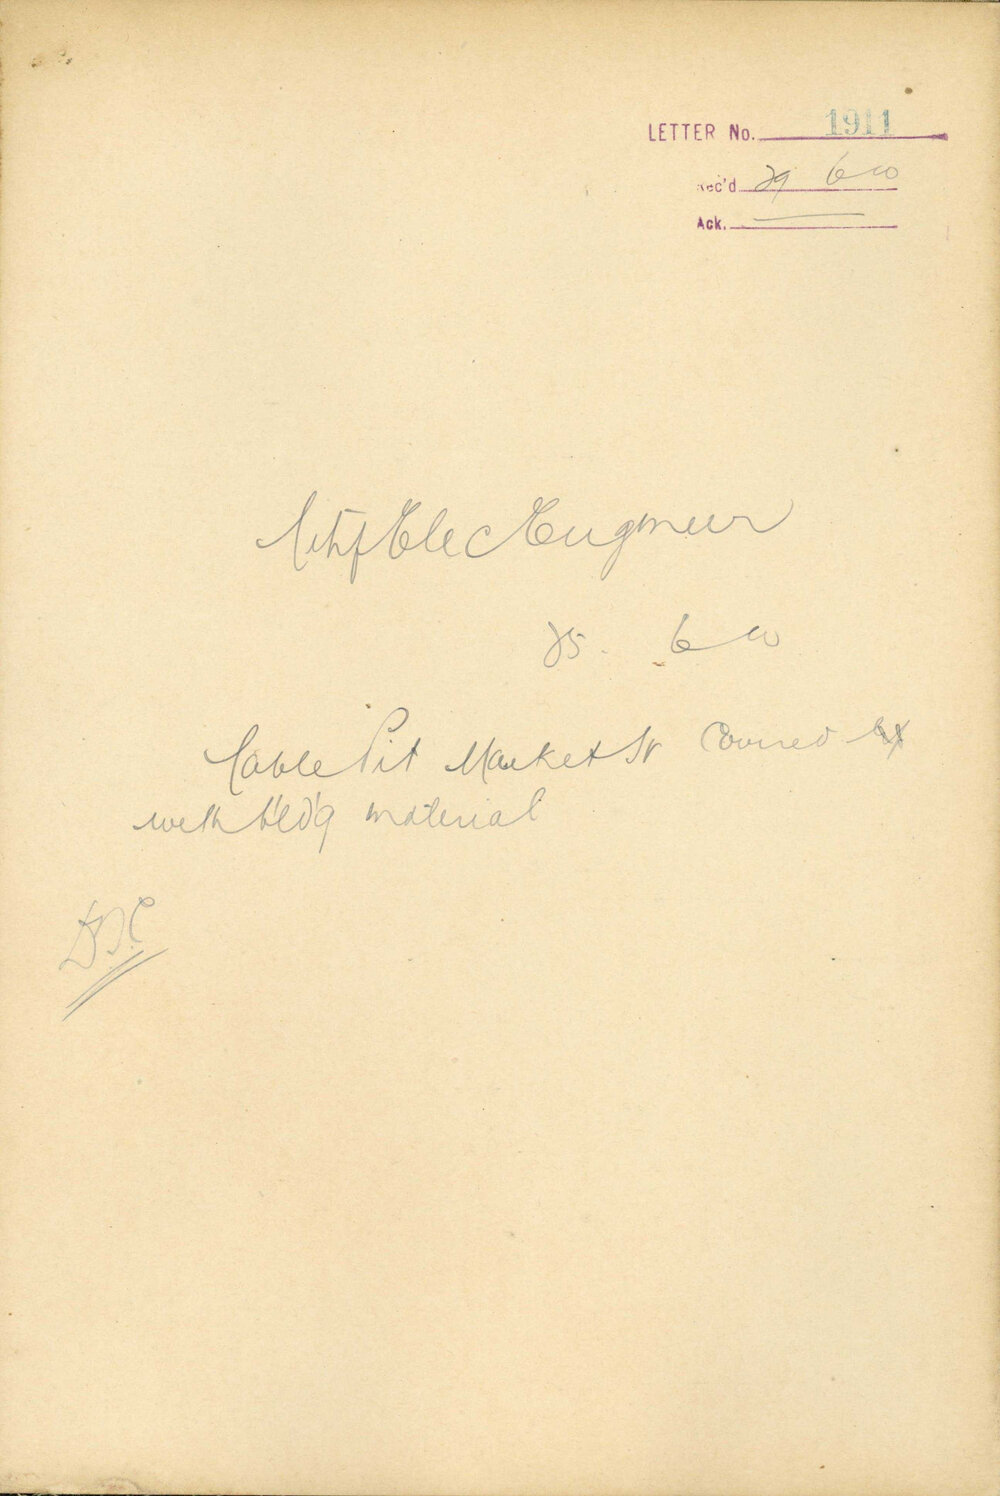 LETTER No. 1911
Rec'd 29 6 20
Ack.
City Elec Engineer
25. 6 20
Cable Pit Market St Covered
with bldg material